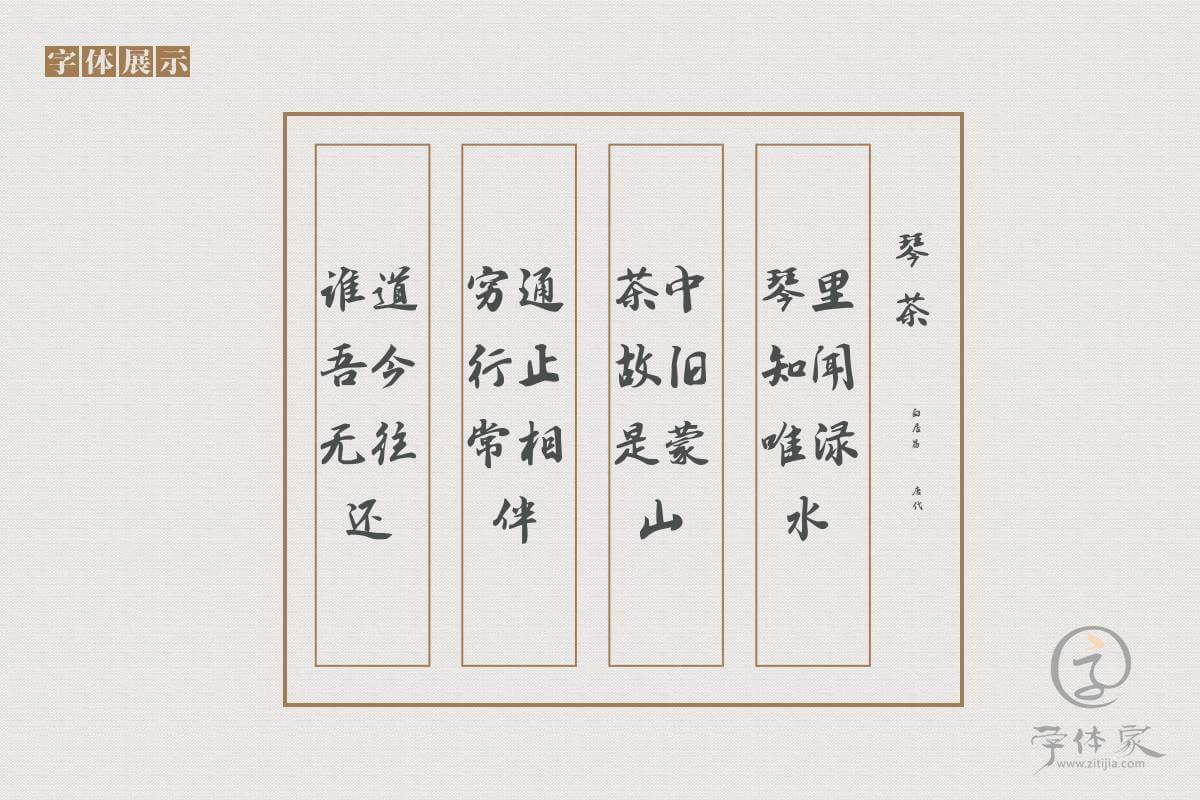 字体展示
琴茶
白居易 唐代
琴里
知闻
唯渌
水
茶中
故旧
是蒙
山
穷通
行止
常相
伴
谁道
吾今
无往
还
字体家
www.zitijia.com